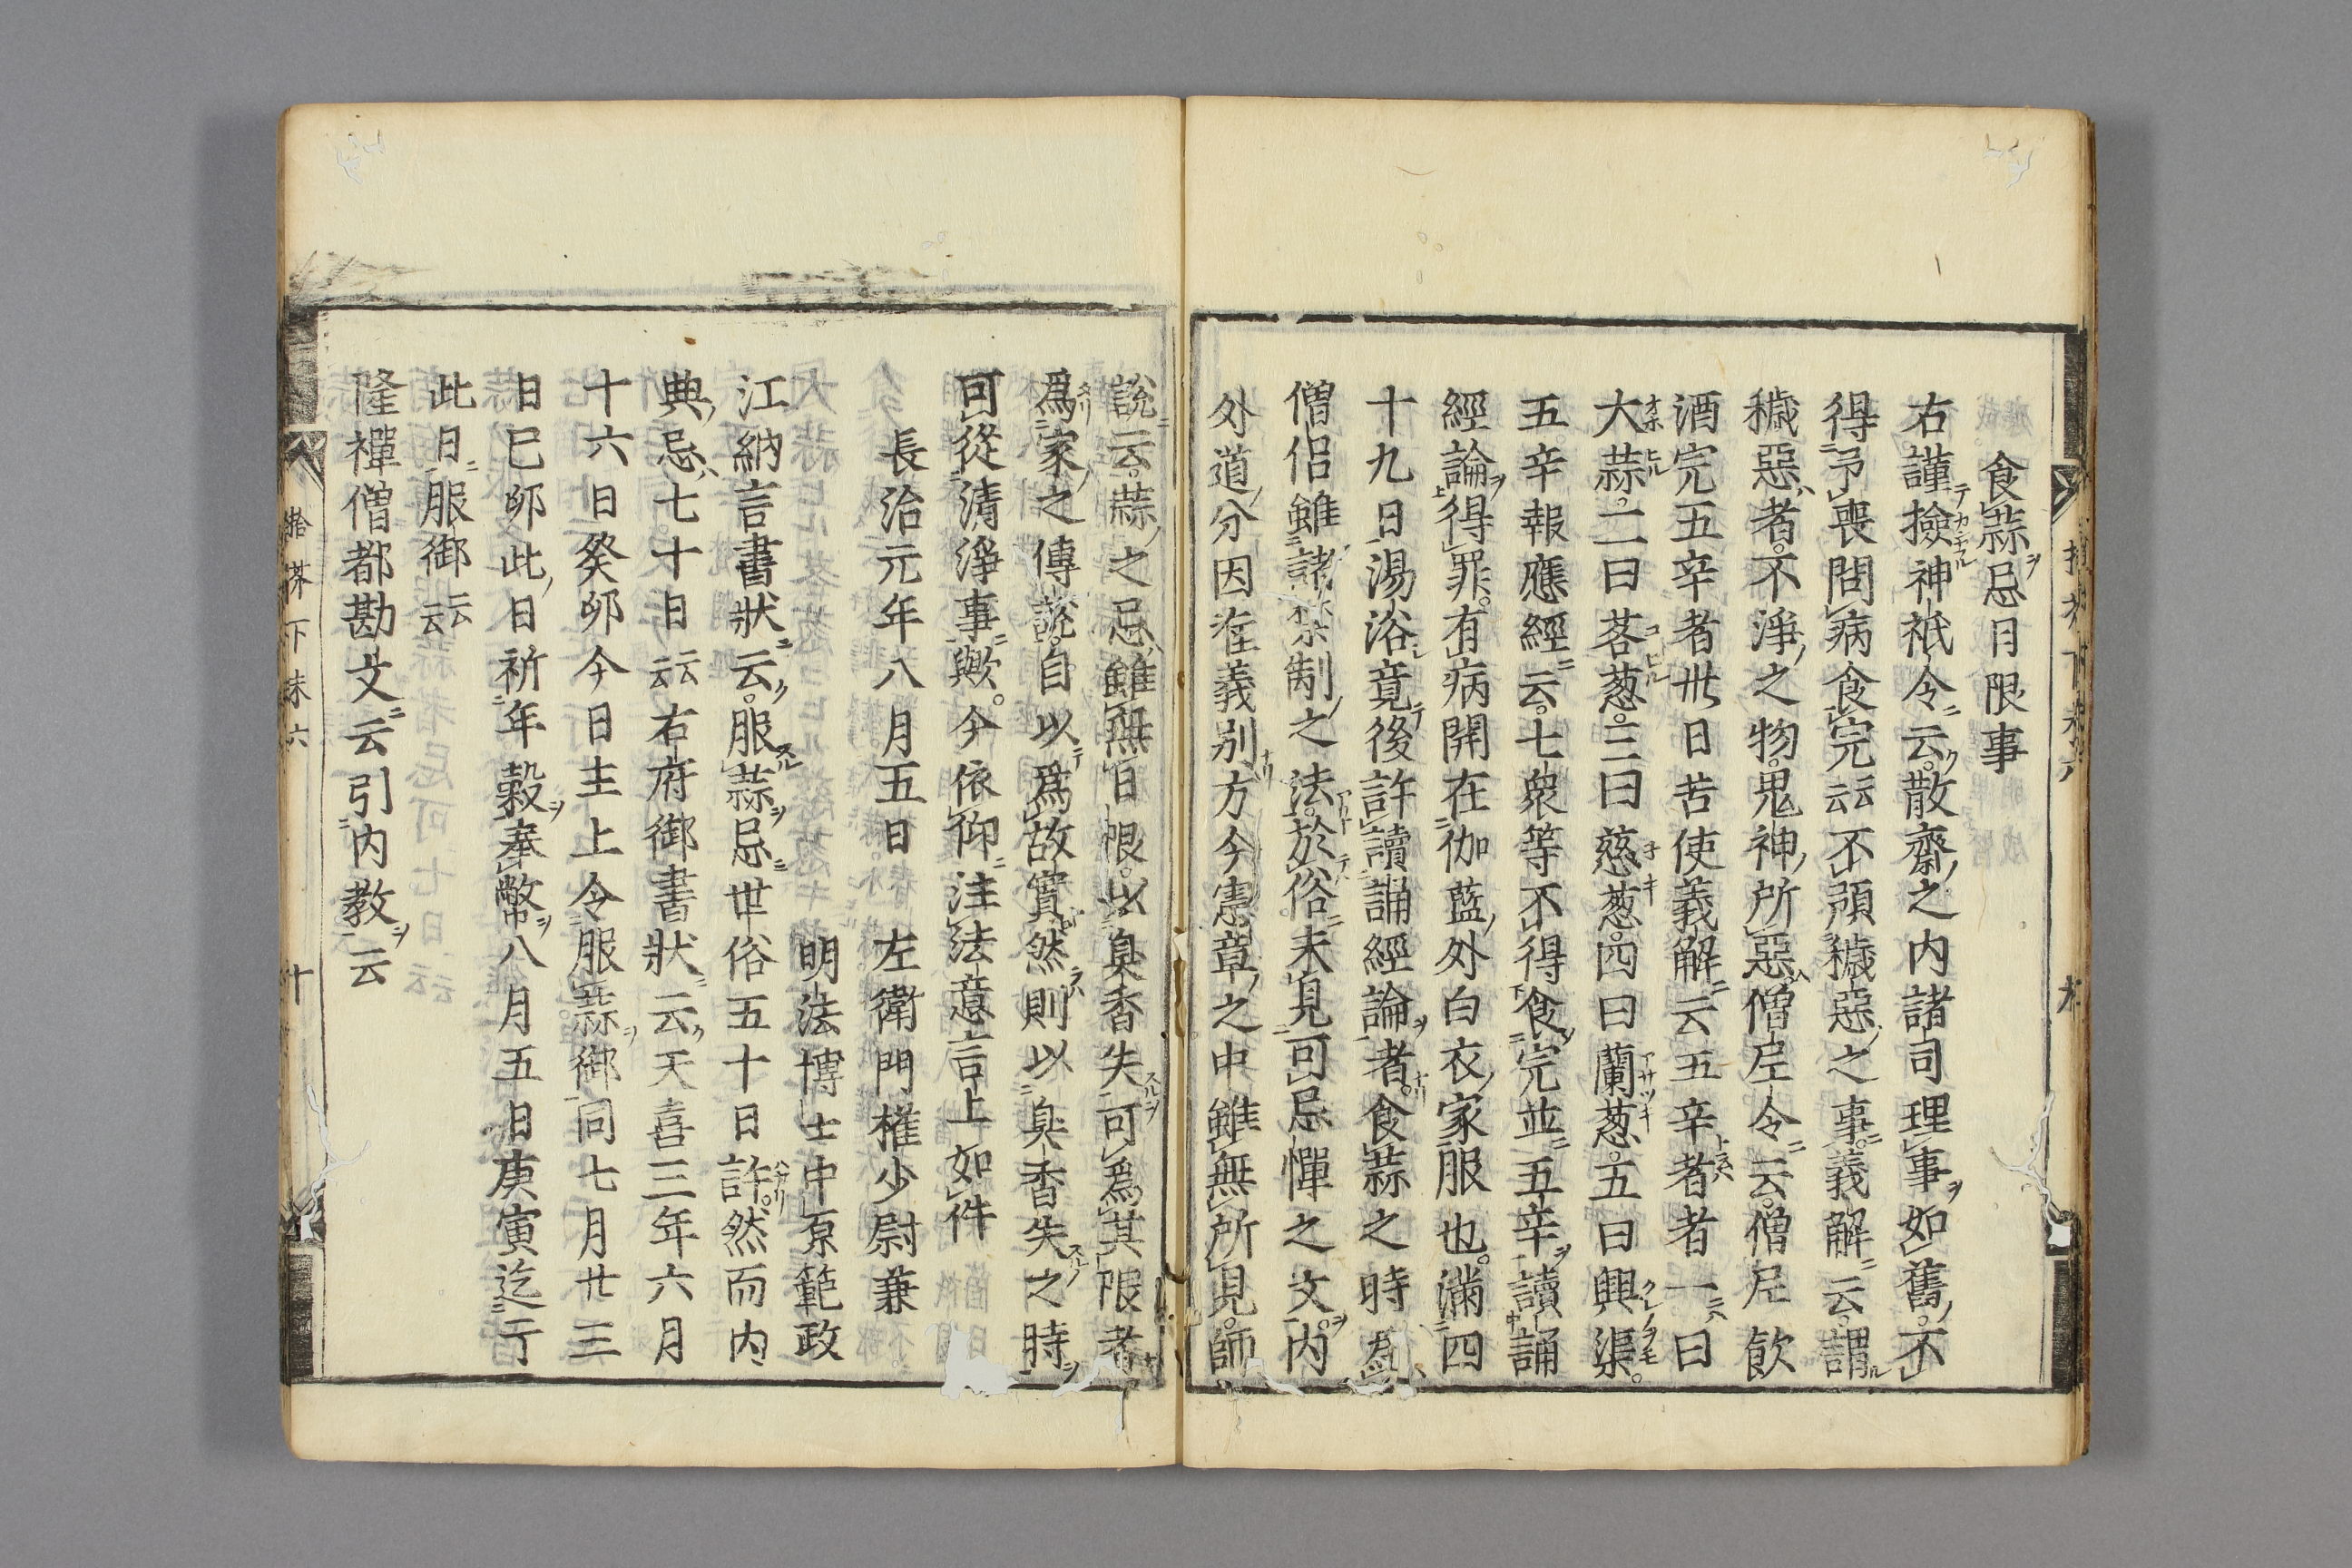 食蒜忌月限事
右謹撿神祇令云散齋之内諸司理事如舊不
得弔喪問病食完云云不預穢惡之事義解云謂
穢惡者不淨之物鬼神所惡僧尼令云僧尼飲
酒完五辛者卅日苦使義解云五辛者者一曰
大蒜二曰茖葱三曰慈葱四曰蘭葱五曰興渠
五辛報應經云七衆等不得食完並五辛讀誦
經論得罪有病開在伽藍外白衣家服也滿四
十九日湯浴竟後許讀誦經論者食蒜之時爲
僧侶雖諸禁制之法於俗未見可忌憚之文内
外道分因准義別方今憲章之中雖無所見師
說云蒜之忌雖無日限以臭香失可爲其限者
爲家之傳說自以爲故實然則以臭香失之時
可從清淨事歟今依仰注法意言上如件
長治元年八月五日　左衛門權少尉兼
明法博士中原範政
江納言書狀云服蒜忌世俗五十日許然而内
典忌七十日云云右府御書狀云天喜三年六月
十六日癸卯今日主上令服蒜御同七月廿三
日巳卯此日祈年穀奉幣八月五日庚寅迄于
此日服御云云
隆禪僧都勘文云引内教云
拾芥下末六
十